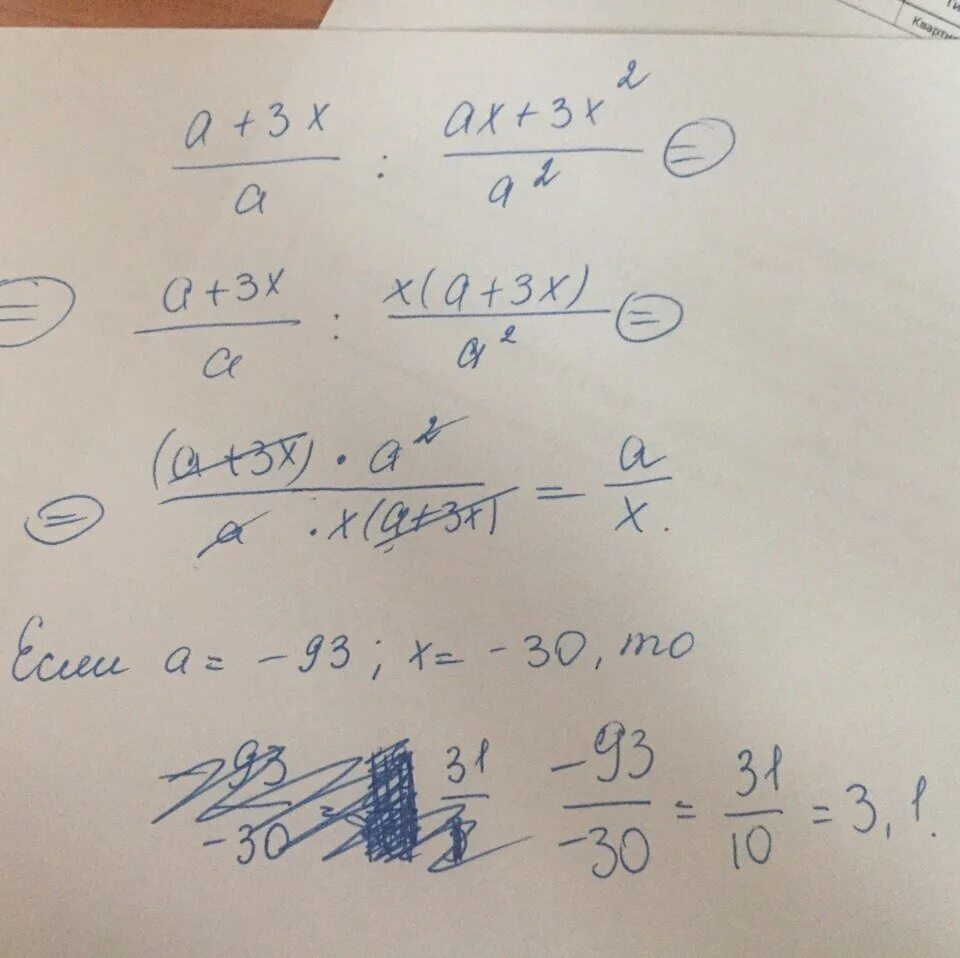 Кварти
a + 3x / a : ax + 3x² / a² =
= a + 3x / a : x(a + 3x) / a² =
= (a + 3x) · a² / a · x(a + 3x) = a / x.
Если a = -93; x = -30, то
-93 / -30 = 31 / -93 / -30 = 31 / 10 = 3,1.